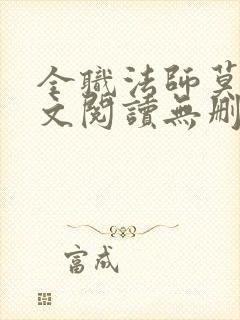 全職法師莫
文閱讀無刪
富成